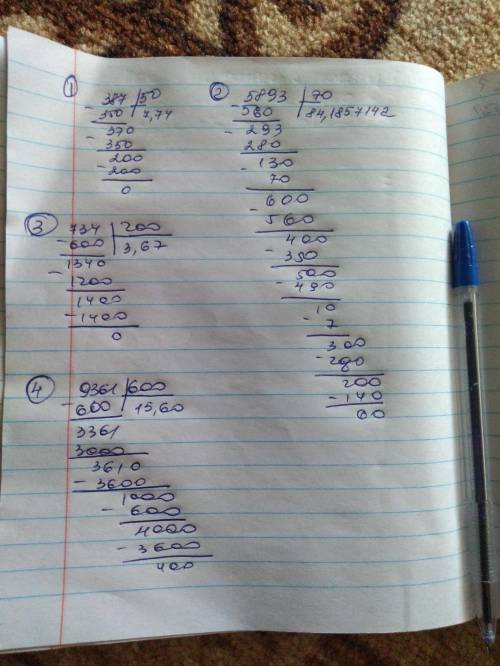 1
- 387 | 50
350 | 7,74
- 370
350
200
200
0
2
- 5893 | 70
560 | 84,1857142
- 293
280
- 130
70
- 600
560
400
- 350
500
- 490
10
- 7
300
- 280
200
- 140
60
3
734 | 200
- 600 | 3,67
1340
- 1200
1400
- 1400
0
4
9361 | 600
- 600 | 15,60
3361
3000
3610
- 3600
1000
- 600
4000
- 3600
400